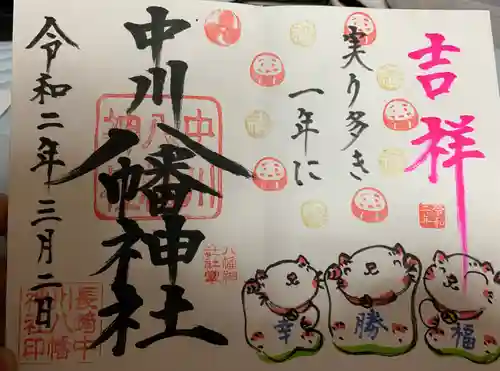 吉祥
実り多き
一年に
中川八幡神社
令和二年三月二日
中川八幡神社
八幡神社社掌
長崎中川八幡神社印
幸
勝
福